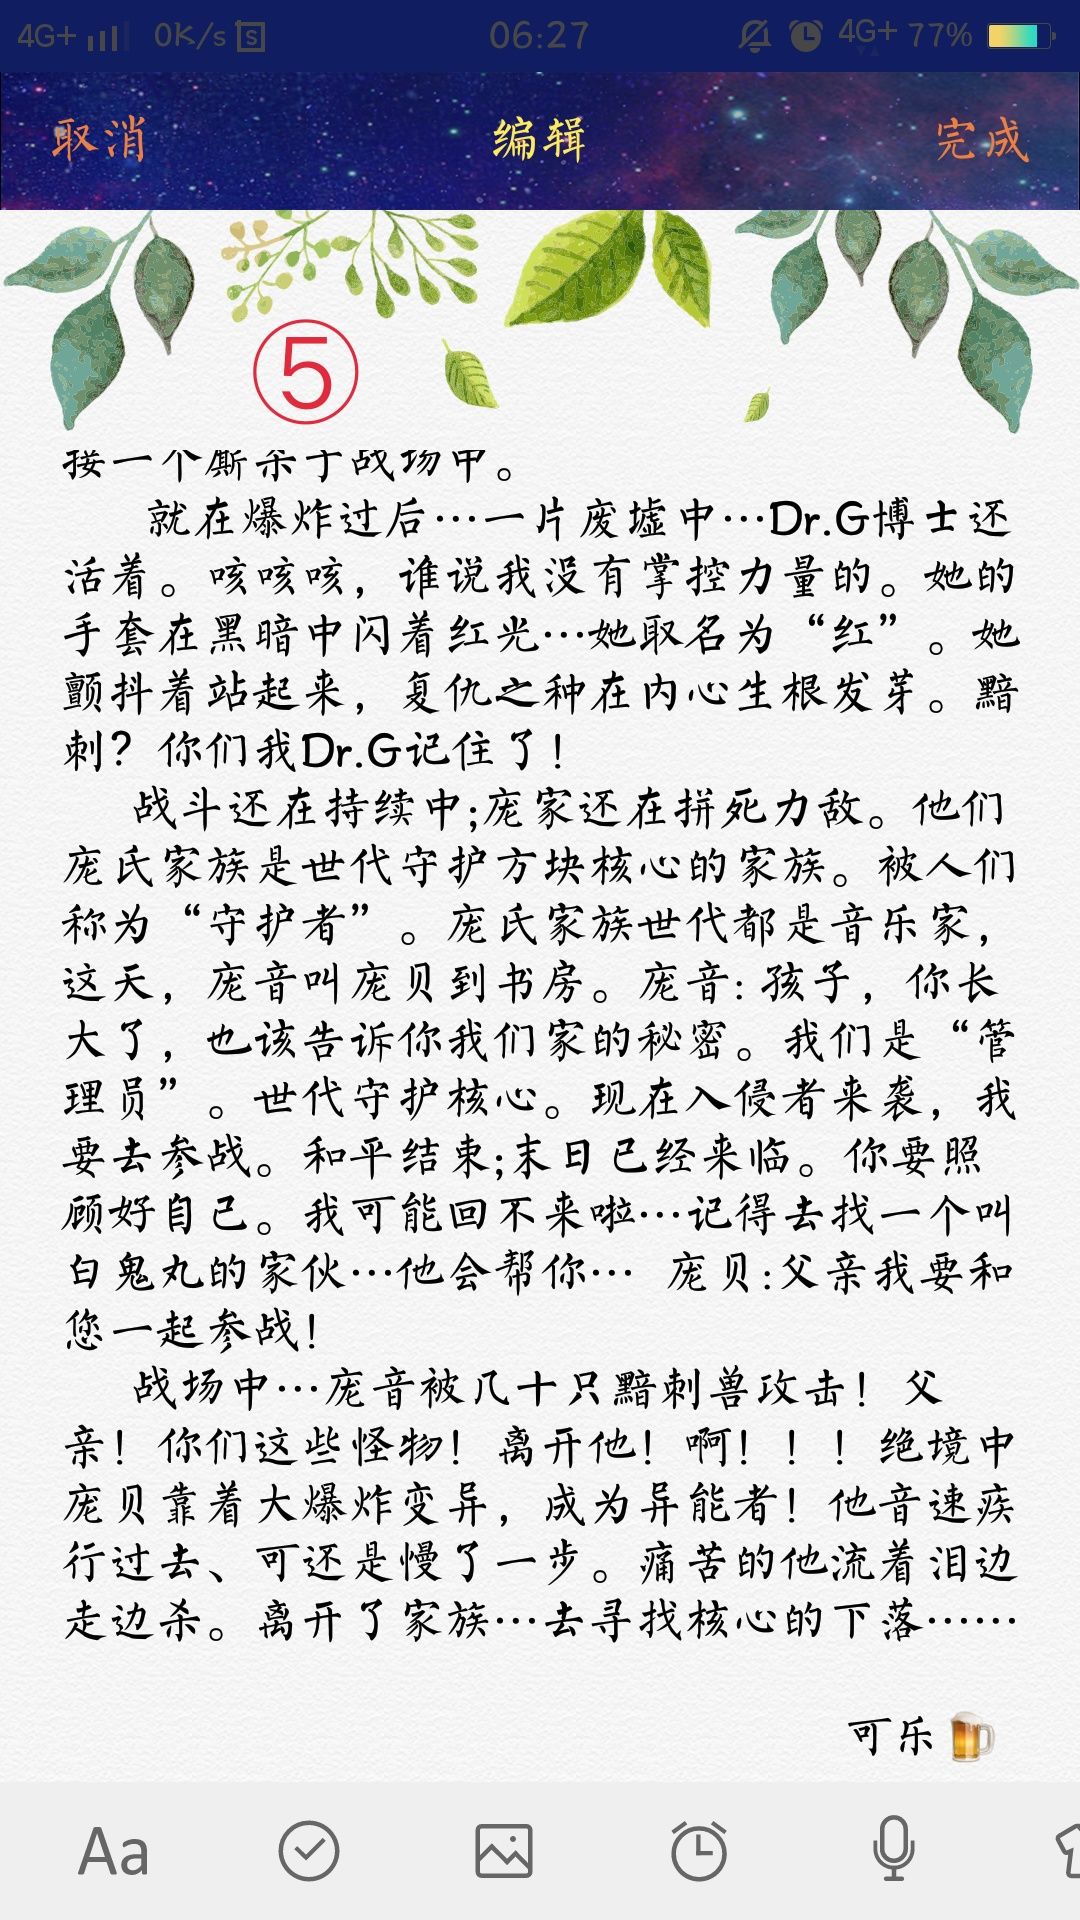 4G+ 0K/s S 06:27 4G+ 77%
取消 编辑 完成
5
接一个厮杀于战场中。
就在爆炸过后…一片废墟中…Dr.G博士还
活着。咳咳咳，谁说我没有掌控力量的。她的
手套在黑暗中闪着红光…她取名为“红”。她
颤抖着站起来，复仇之种在内心生根发芽。黯
刺？你们我Dr.G记住了！
战斗还在持续中;庞家还在拼死力敌。他们
庞氏家族是世代守护方块核心的家族。被人们
称为“守护者”。庞氏家族世代都是音乐家，
这天，庞音叫庞贝到书房。庞音：孩子，你长
大了，也该告诉你我们家的秘密。我们是“管
理员”。世代守护核心。现在入侵者来袭，我
要去参战。和平结束;末日已经来临。你要照
顾好自己。我可能回不来啦…记得去找一个叫
白鬼丸的家伙…他会帮你… 庞贝:父亲我要和
您一起参战！
战场中…庞音被几十只黯刺兽攻击！父
亲！你们这些怪物！离开他！啊！！！绝境中
庞贝靠着大爆炸变异，成为异能者！他音速疾
行过去、可还是慢了一步。痛苦的他流着泪边
走边杀。离开了家族…去寻找核心的下落……
可乐🍺
Aa